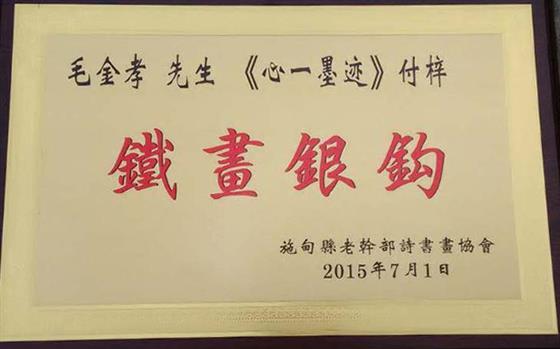 毛金孝 先生 《心一墨迹》付梓
鐵畫銀鈎
施甸縣老幹部詩書畫協會
2015年7月1日